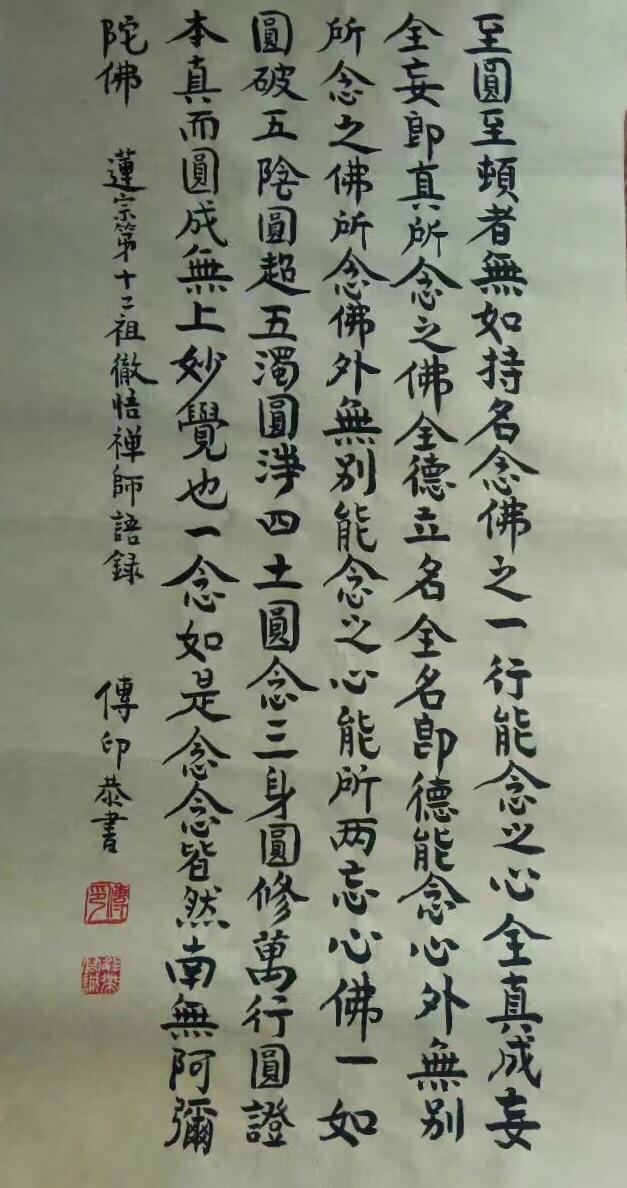 至圓至頓者無如持名念佛之一行能念之心全真成妄
全妄即真所念之佛全德立名全名即德能念心外無別
所念之佛所念佛外無別能念之心能所两忘心佛一如
圓破五陰圓超五濁圓淨四土圓念三身圓修萬行圓證
本真而圓成無上妙覺也一念如是念念皆然南無阿彌
陀佛 蓮宗第十二祖徹悟禅師語録 傳印恭書
傳印